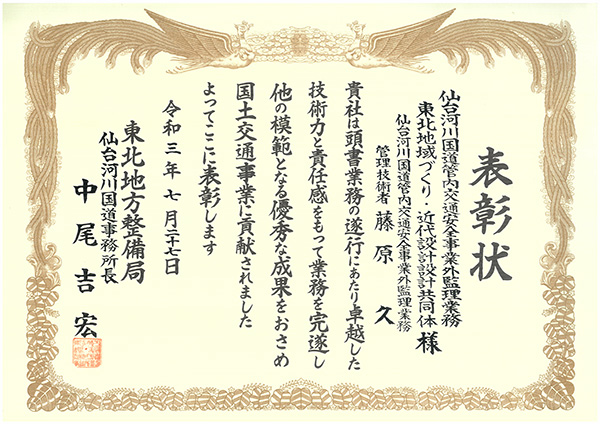 表彰状
仙台河川国道管内交通安全事業外監理業務
東北地域づくり・近代設計設計共同体 様
仙台河川国道管内交通安全事業外監理業務
管理技術者 藤原 久
貴社は頭書業務の遂行にあたり卓越した
技術力と責任感をもって業務を完遂し
他の模範となる優秀な成果をおさめ
国土交通事業に貢献されました
よってここに表彰します
令和三年七月二十七日
東北地方整備局
仙台河川国道事務所長
中尾吉宏